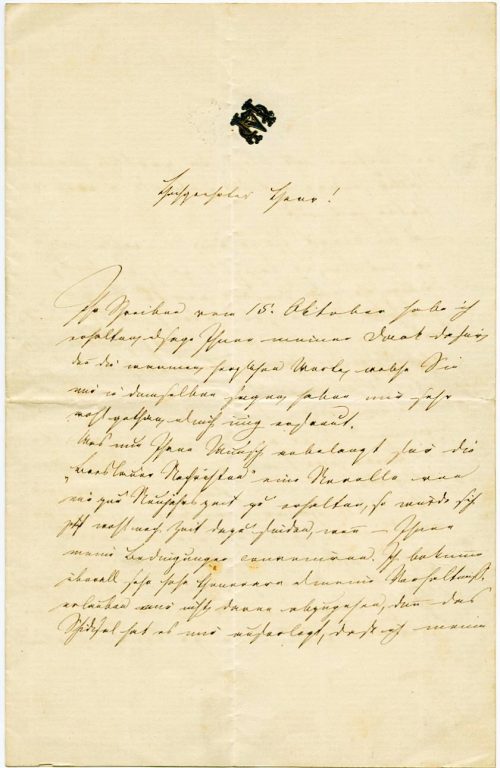 Hochgeehrter Herr!
Ihr Schreiben vom 15. Oktober habe ich
erhalten & sage Ihnen meinen Dank dafür,
da die warmen herzlichen Worte, welche Sie
mir in demselben sagen haben mir sehr
wohl gethan & mich erfreut.
Was nun Ihren Wunsch anbelangt für die
"Breslauer Nachrichten" eine Novelle von
mir zur Neujahrszeit zu erhalten, so würde sich
wohl noch Zeit dazu finden, wenn – Ihnen
meine Bedingungen conveniren. Ich bekomme
überall sehr hohe Honorare & meine Verhältnisse
erlauben mir nicht davon abzugehen, denn das
Schicksal hat es mir auferlegt, daß ich meine